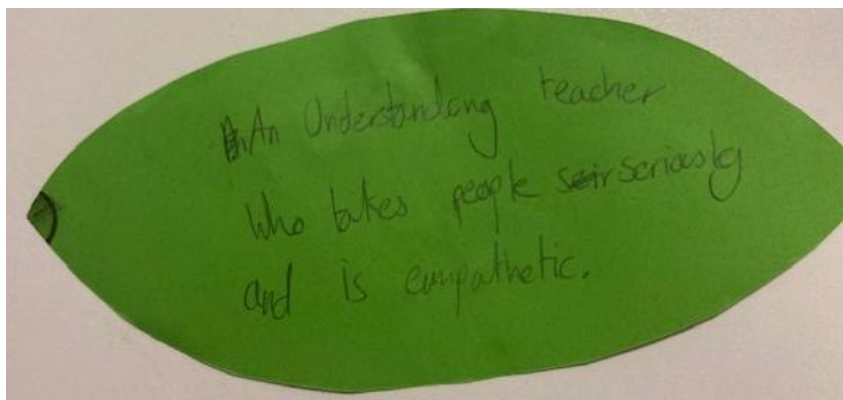 An Understanding teacher
Who takes people seriously
and is empathetic.